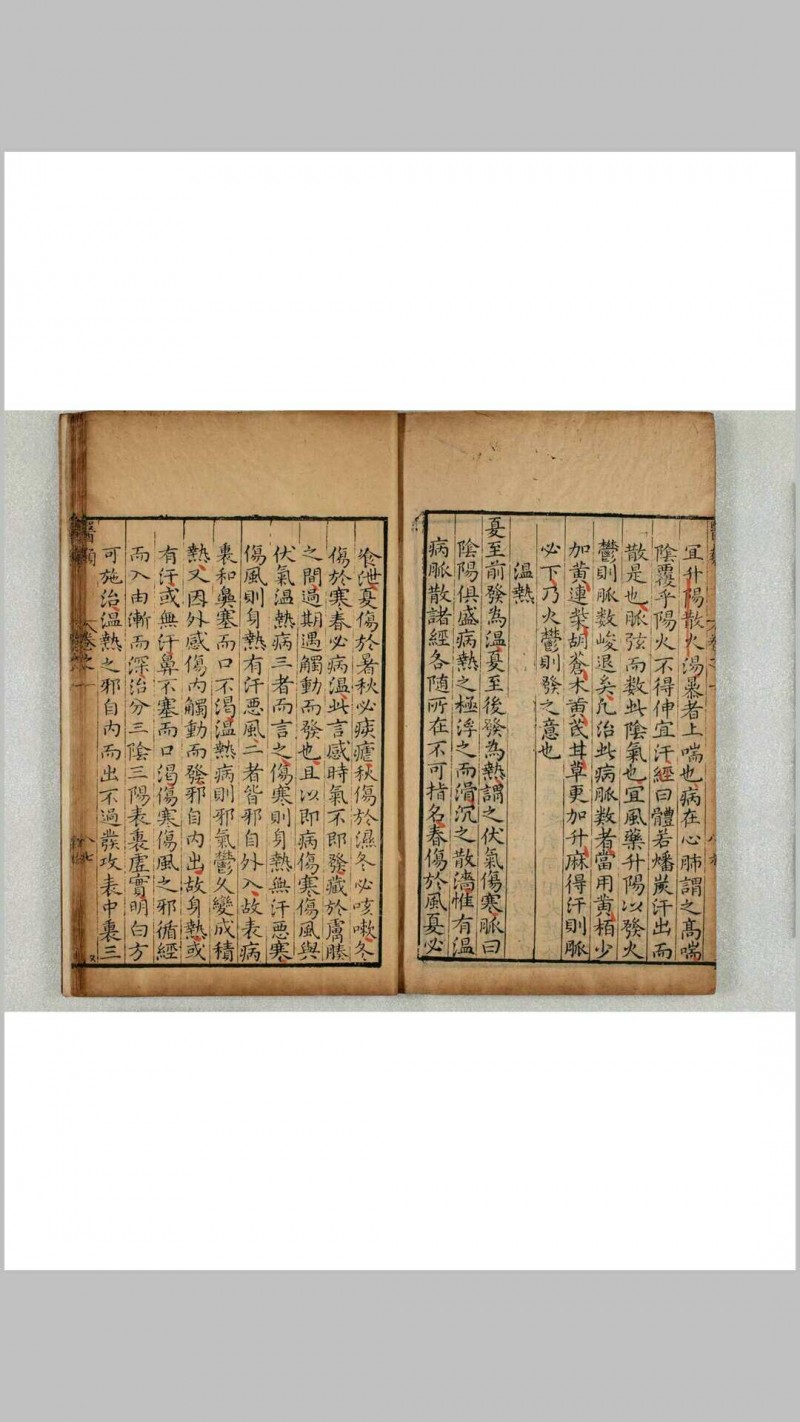 宜升陽散火湯暴者上喘也病在心肺謂之髙喘
陰覆乎陽火不得伸宜汗經曰體若燔炭汗出而
散是也脈弦而数此陰氣也宜風藥升陽以發火
鬱則脈数峻退矣凢治此病脈数者當用黄栢少
加黄連柴胡蒼术黄芪甘草更加升麻得汗則脈
必下乃火鬱則發之意也
温熱
夏至前發為温夏至後發為熱謂之伏氣傷寒脈曰
陰陽俱盛病熱之極浮之而滑沉之散濇惟有温
病脈散諸經各随所在不可指名春傷於風夏必
飱泄夏傷於暑秋必痎瘧秋傷於濕冬必咳嗽冬
傷於寒春必病温此言感時氣不即發藏於膚腠
之間過期遇觸動而發也且以即病傷寒傷風與
伏氣温熱病三者而言之傷寒則身熱無汗悪寒
傷風則身熱有汗悪風二者皆邪自外入故表病
裏和鼻塞而口不渇温熱病則邪氣鬱久變成積
熱又因外感傷内觸動而發邪自内出故身熱或
有汗或無汗鼻不塞而口渇傷寒傷風之邪循經
而入由漸而深治分三陰三陽表裏虚實明白方
可施治温熱之邪自内而出不過發攻表中裏三
醫類
卷之十